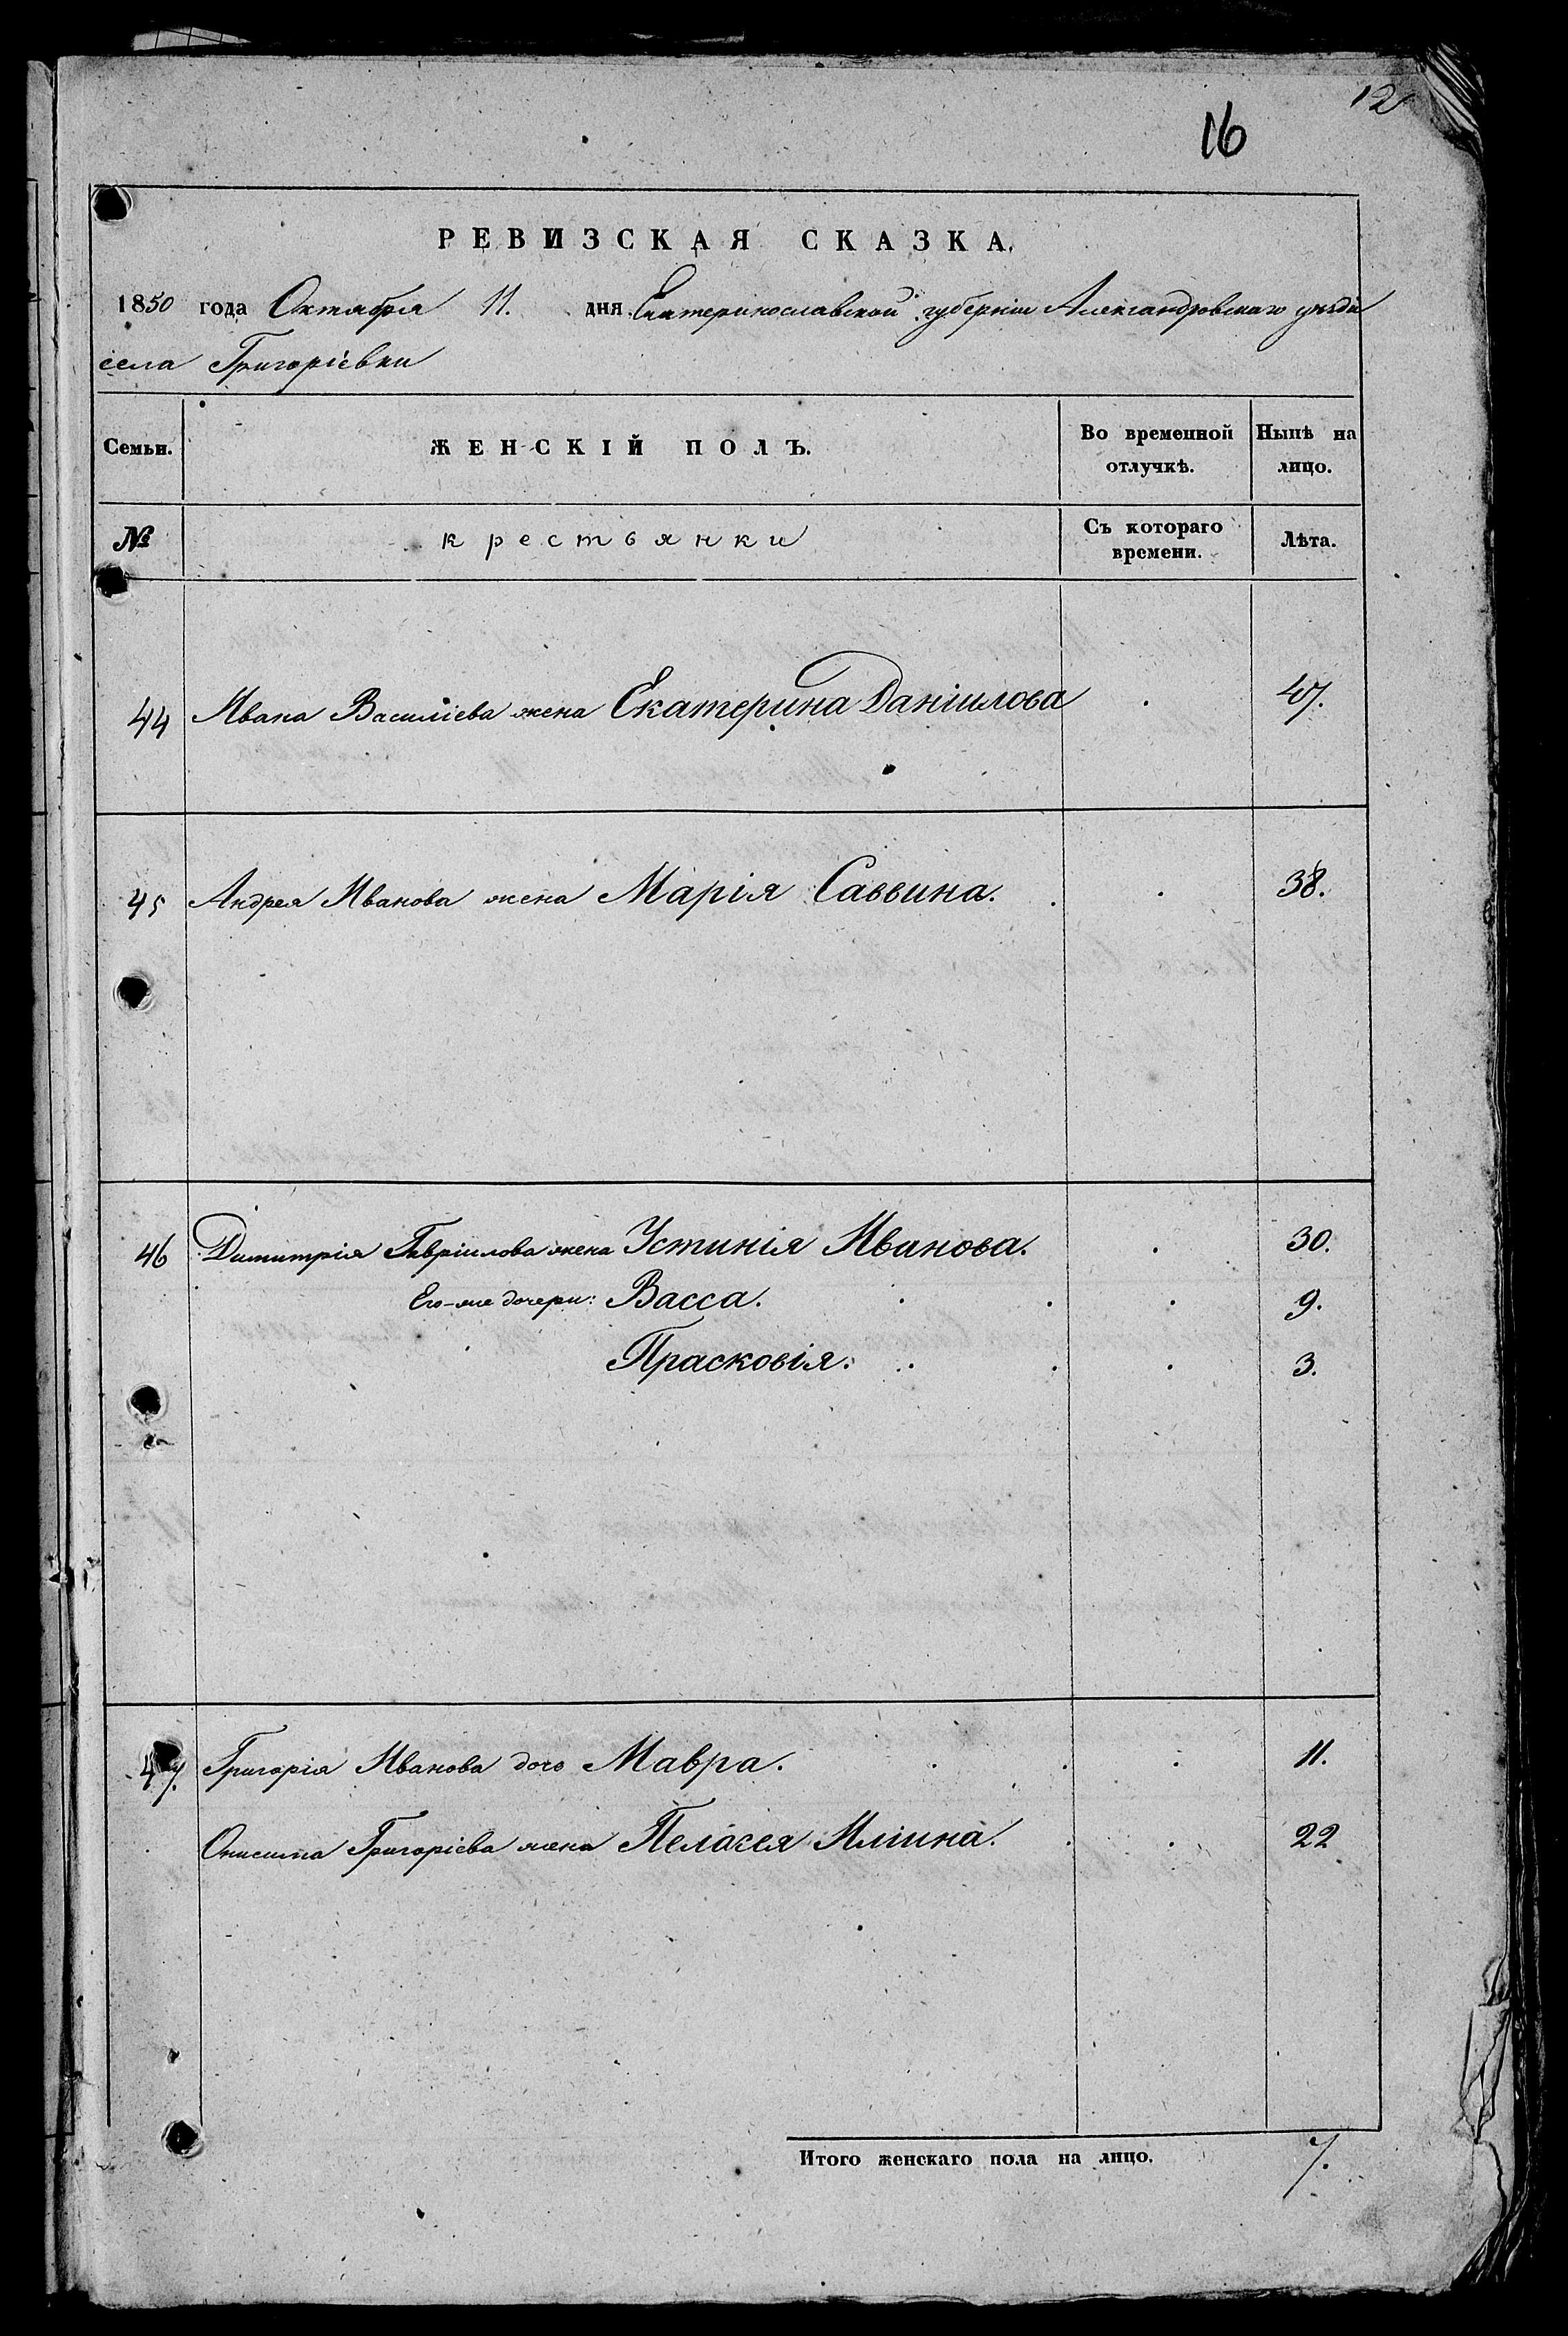 12
16
РЕВИЗСКАЯ СКАЗКА.
1850 года Октября 11. дня Екатеринославской губерніи Александровскаго уѣзда
села Григоріевки
Семьи. ЖЕНСКІЙ ПОЛЪ. Во временной отлучкѣ. Нынѣ на лицо.
№ крестьянки Съ котораго времени. Лѣта.
44 Ивана Василіева жена Екатерина Даніилова . 47.
45 Андрея Иванова жена Марія Саввина. . 38.
46 Димитрія Гавріилова жена Устинія Иванова. . 30.
Его-же дочери: Васса. . 9.
Прасковія. . 3.
47. Григорія Иванова дочь Мавра. . 11.
Онисима Григоріева жена Пелагея Иліина. . 22
Итого женскаго пола на лицо. 7.